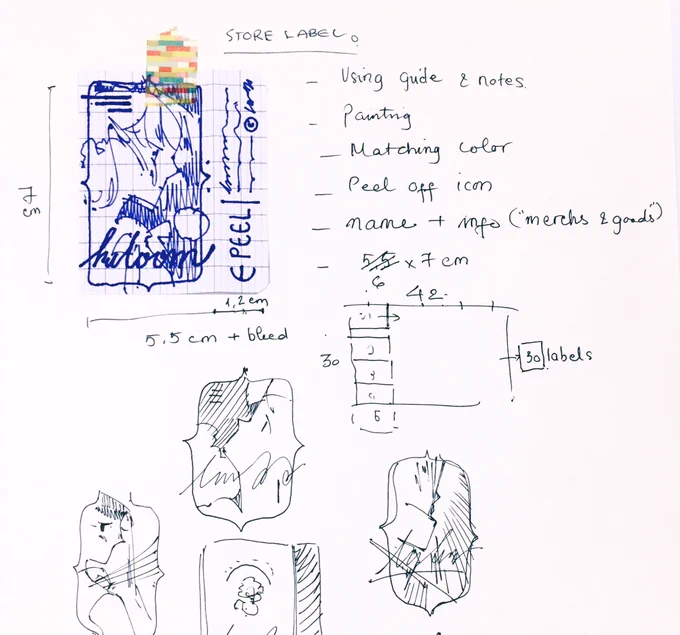 STORE LABEL.
- Using guide & notes
- Painting
- Matching color
- Peel off icon
- name + info ("merchs & goods")
- 5,5 x 7 cm
6
PEEL
7 cm
1,2 cm
5,5 cm + bleed
42
30
6
30 labels